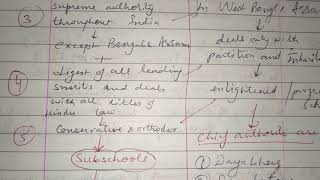 supreme authority
③ throughout India
↓
except Bengal & Assam
+
④ digest of all leading
smritis and deals
with all titles of
Hindu law
↓
⑤ Conservative & orthodox
Subschools
In West Bengal & Assam
deals only with
partition and
enlightened /
Chief authorities are
① Dayabhag